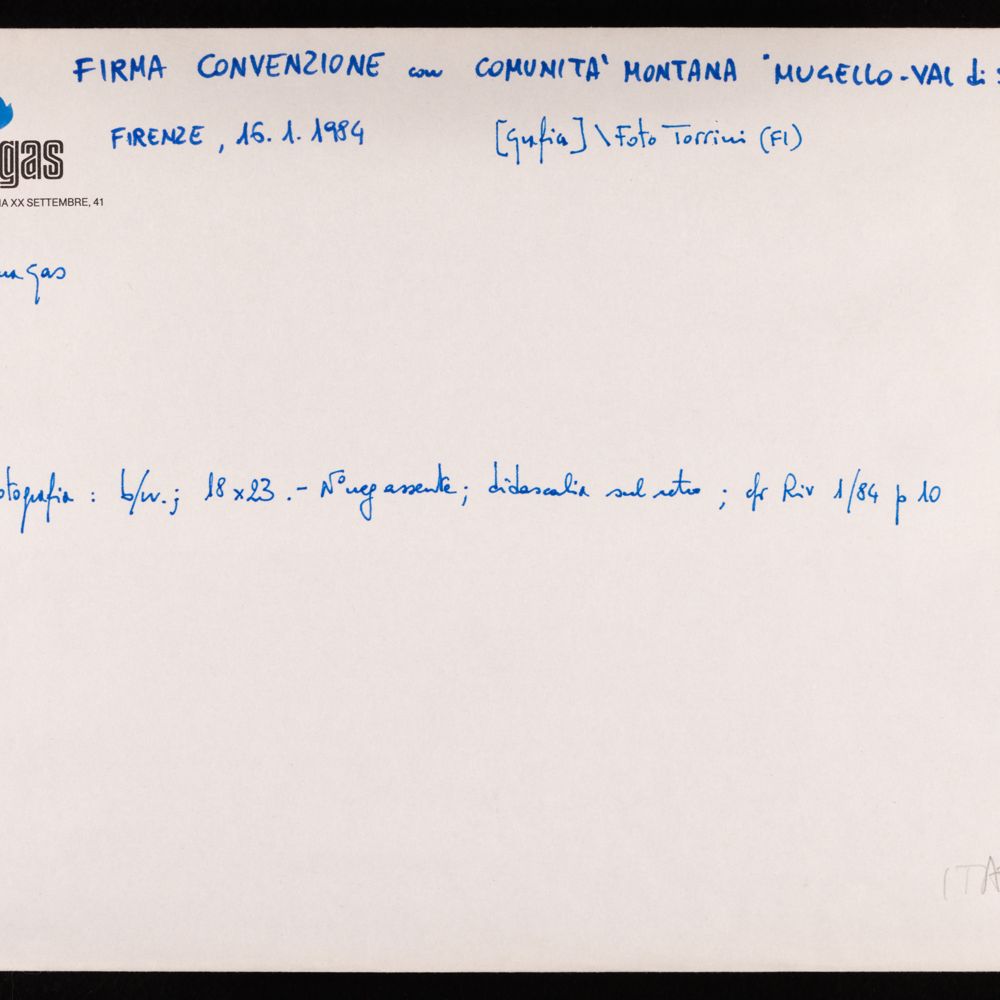 FIRMA CONVENZIONE con COMUNITA' MONTANA "MUGELLO-VAL di S
FIRENZE, 16.1.1984 [Grafia] \ Foto Torrini (FI)
gas
IA XX SETTEMBRE, 41
gas
otografia : b/n.; 18x23 .- N° neg assente; didascalia sul retro ; cfr Riv 1/84 p 10
ITA